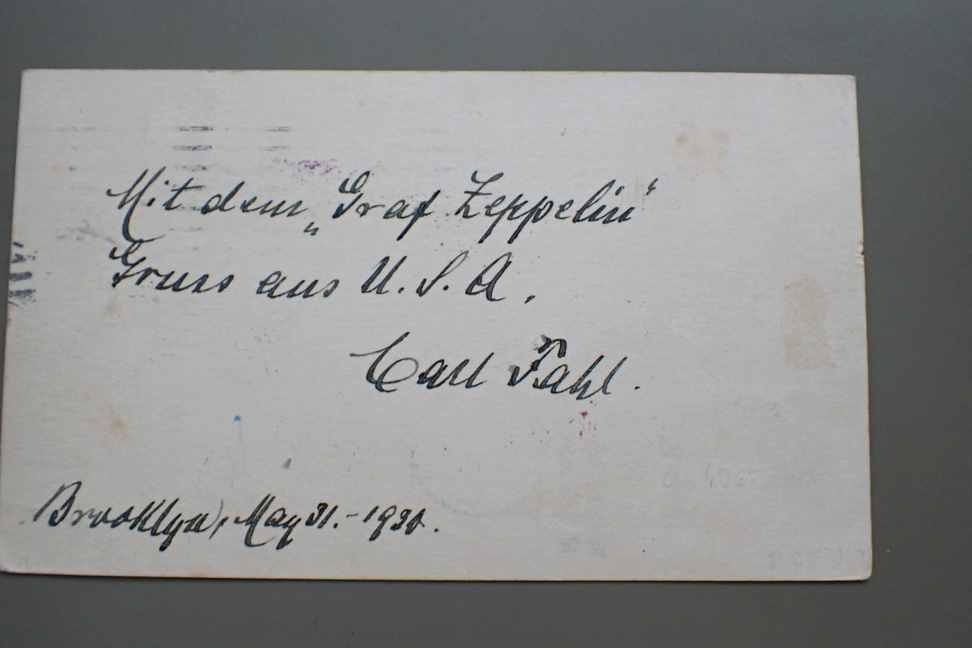 Mit dem „Graf Zeppelin“
Gruss aus U.S.A.
Carl Fahl.
Brooklyn, May 31.-1930.